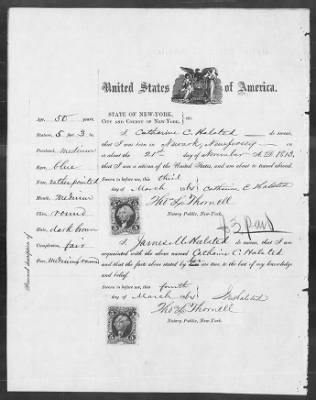 United States of America.
STATE OF NEW-YORK,
CITY AND COUNTY OF NEW-YORK,
I Catharine C. Halsted do swear,
that I was born in Newark, New Jersey
on or about the 21st day of November A.D. 1813,
that I am a citizen of the United States, and am about to travel abroad.
Sworn to before me, this third
day of March Catharine C Halsted
Tho L Thornell
Notary Public, New-York.
$3 paid
I James M Halsted do swear, that I am
acquainted with the above named Catharine C. Halsted
and that the facts above stated by her are true, to the best of my knowledge
and belief.
Sworn to before me, this fourth
day of March
Tho L Thornell
Notary Public, New-York.
Personal description of
Age, 50 years
Stature, 5 feet 3 in
Forehead, medium
Eyes, blue
Nose, rather pointed
Mouth, medium
Chin, round
Hair, dark brown
Complexion, fair
Face, medium round